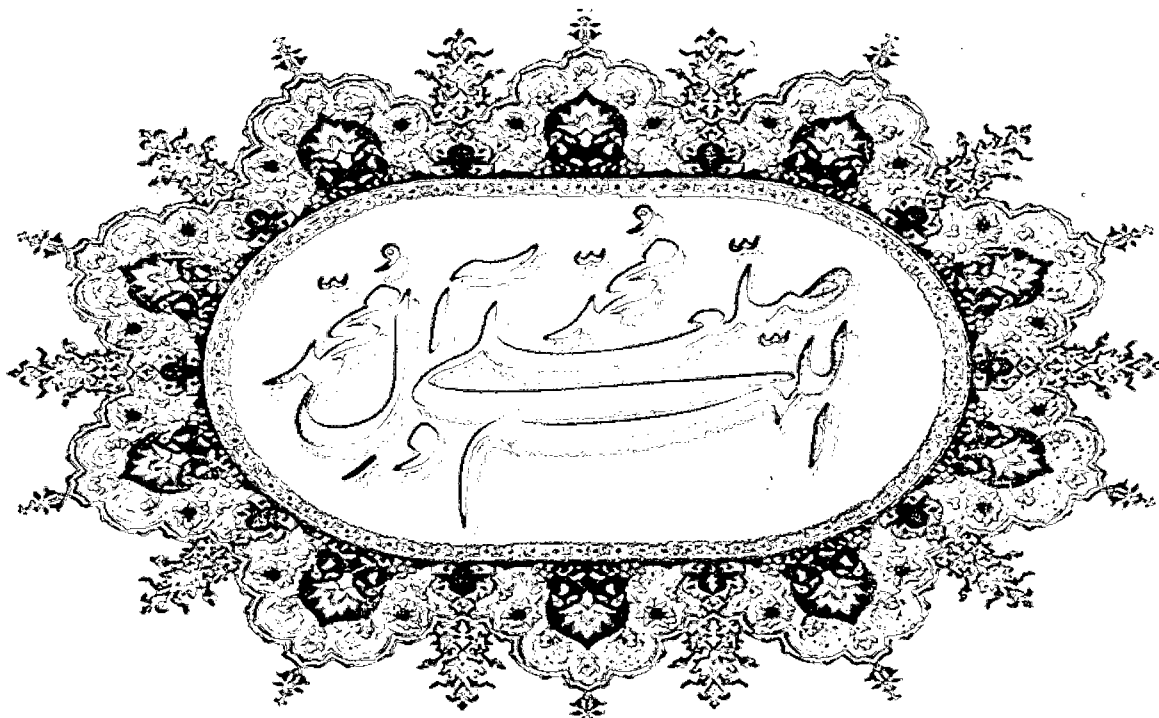 اللّهم صلّ علی محمّد و آل محمّد